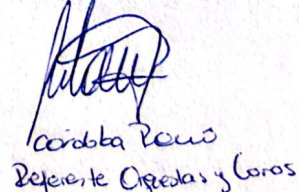 Cordoba Rocio
Referente Orquestas y Coros